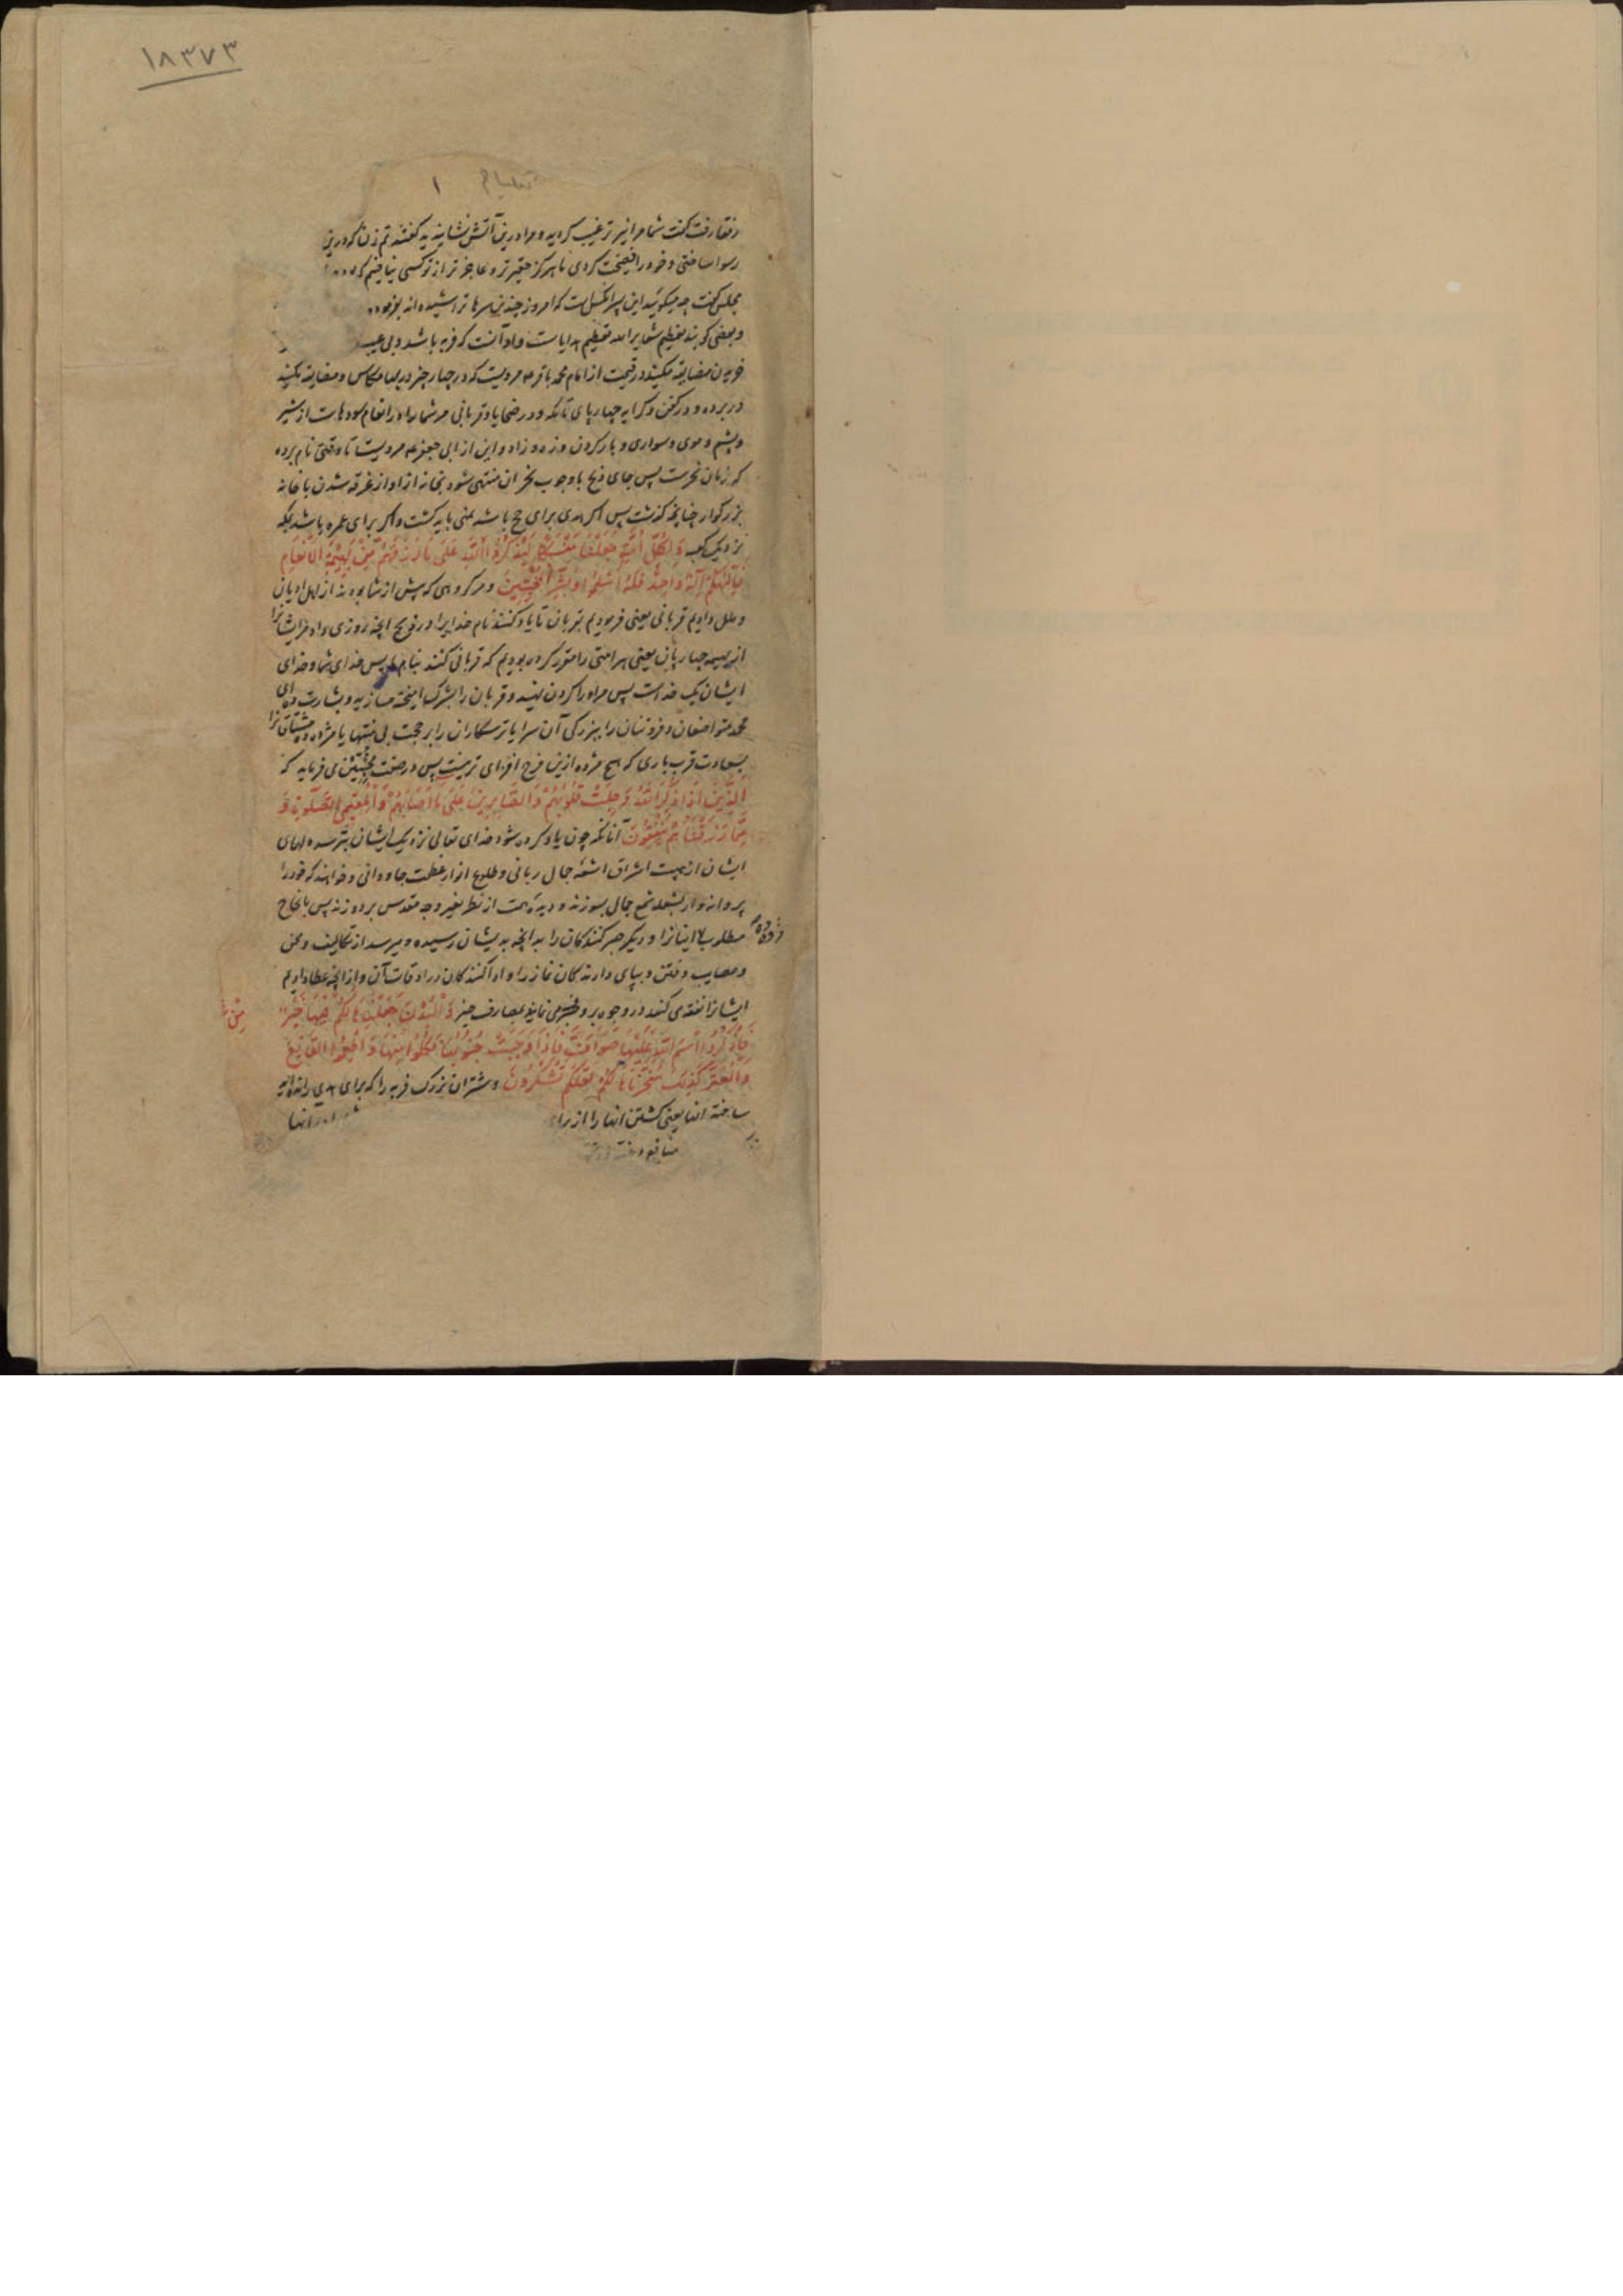 ۱۸۳۷۳
۱
رفقا رفت گفت شما مرا نیز ترغیب کردید و مرا درین آتش نشاندید گفتند تم زن که درین
رسوا ساختی و خود را فضیحت کردی ما هرگز حقیرتر و عاجزتر از تو کسی نیافتیم که
مجلس گفت چه میکوئید این پسر انکسیست که امروز چندین سرها تراشیده اند بفرمود
و بعضی کویند تعظیم شعایر الله تعظیم هدایا ست و او آنست که فربه باشد و بی عیب
خریدن مضایقه نکیند در قیمت از امام محمد باقر مرویست که در چهار چیز در بها مکاس و مضایقه نکنید
در برده و در کفن و کرایه چهارپای تا مکه و در ضحایا و قربانی مر شما را در انعام سودهاست از شیر
و پشم و موی و سواری و بار کردن و زه و زاد و این از ابی جعفر مرویست تا وقتی نام برده
که زمان نحرست پس جای ذبح یا وجوب نحر ان منتهی شود بخانه ازاد از غرقه شدن یا خانه
بزرکوار چنانچه کذشت پس اکر هدی برای حج باشد بمنی باید کشت و اکر برای عمره باشد بمکه
نزدیک کعبه وَلِكُلِّ أُمَّةٍ جَعَلْنَا مَنْسَكًا لِيَذْكُرُوا اللَّهَ عَلَى مَا رَزَقَهُمْ مِنْ بَهِيمَةِ الْأَنْعَامِ
فَإِلَهُكُمْ إِلَهٌ وَاحِدٌ فَلَهُ أَسْلِمُوا وَبَشِّرِ الْمُخْبِتِينَ و مر کروهی که پیش از شما بودند از اهل ادیان
و ملل دادیم قربانی یعنی فرمودیم بقربان تا یاد کنند نام خدا یرا در ذبح انچه روزی داد مر ایشانرا
از بهیمه چهارپایان یعنی هر امتی را مقرر کرده بودیم که قربانی کنند بنام پس خدای شما و خدای
ایشان یک خداست پس مر او را کردن نهید و قربان را بشرک امیخته مسازید و بشارت ده ای
محمد متواضعان و فروتنان را ببزرکی آن سرا یا ترسکاران را برحمت بی منتها یا مژده ده مشتاقانرا
بسعادت قرب باری که هیچ مژده ازین فرح افزای تر نیست پس در صفت مخبتین می فرماید که
الَّذِينَ إِذَا ذُكِرَ اللَّهُ وَجِلَتْ قُلُوبُهُمْ وَالصَّابِرِينَ عَلَى مَا أَصَابَهُمْ وَالْمُقِيمِي الصَّلَوةِ وَ
مِمَّا رَزَقْنَاهُمْ يُنْفِقُونَ آنانکه چون یاد کرده شود خدای تعالی نزدیک ایشان بترسد دلهای
ایشان از هیبت اشراق اشعه جمال ربانی و طلوع انوار عظمت جاودانی و خواهند که خود را
پروانه وار بشعله شمع جمال بسوزند و دیده همت از نظر بغیر وجه مقدس بردوزند پس بانجاح
مطلوب اینانرا و دیکر صبر کنندکان را به انچه بدیشان رسیده و میرسد از تکالیف و محن
مژده ده
و مصایب و فتن و بپای دارندکان نماز را و اداکنندکان در اوقات آن و از انچه عطا دادیم
ایشانرا نفقه می کنند در وجوه بر و خیر می نمایند بمصارف خیر وَالْبُدْنَ جَعَلْنَاهَا لَكُمْ فِيهَا خَيْرٌ
فَاذْكُرُوا اسْمَ اللَّهِ عَلَيْهَا صَوَافَّ فَإِذَا وَجَبَتْ جُنُوبُهَا فَكُلُوا مِنْهَا وَأَطْعِمُوا الْقَانِعَ
وَالْمُعْتَرَّ كَذَلِكَ سَخَّرْنَاهَا لَكُمْ لَعَلَّكُمْ تَشْكُرُونَ و شتران بزرک فربه را که برای هدی رانده اید
ساخته انها یعنی کشتن انها را از برای
منافع